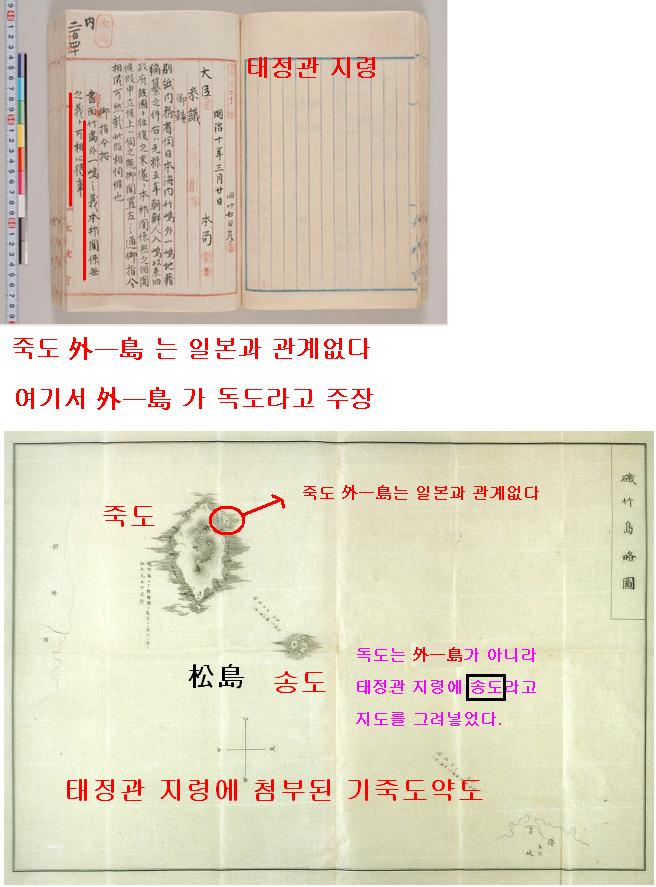 태정관 지령
明治十年三月廿日
大臣
本局
参議
卿輔
別紙内務省伺日本海内竹嶋外一嶋地籍
編纂之件右ハ元禄五年朝鮮人入嶋以来旧
政府該国ト往復之末遂ニ本邦関係無之相聞
候段申立候上ハ伺之趣御聞置左之通御指令
相成可然哉此段相伺候也
御指令按
書面竹島外一嶋之義本邦関係無
之義ト可相心得事
内
죽도 外一島 는 일본과 관계없다
여기서 外一島 가 독도라고 주장
磯竹島略圖
죽도 外一島는 일본과 관계없다
죽도
磯竹島
松島 송도
독도는 外一島가 아니라
태정관 지령에 송도라고
지도를 그려넣었다.
태정관 지령에 첨부된 기죽도약도